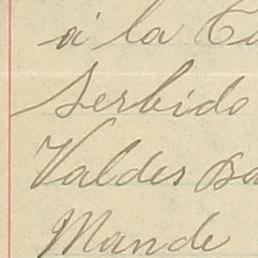 á la
Serbido
Valdes
Mande